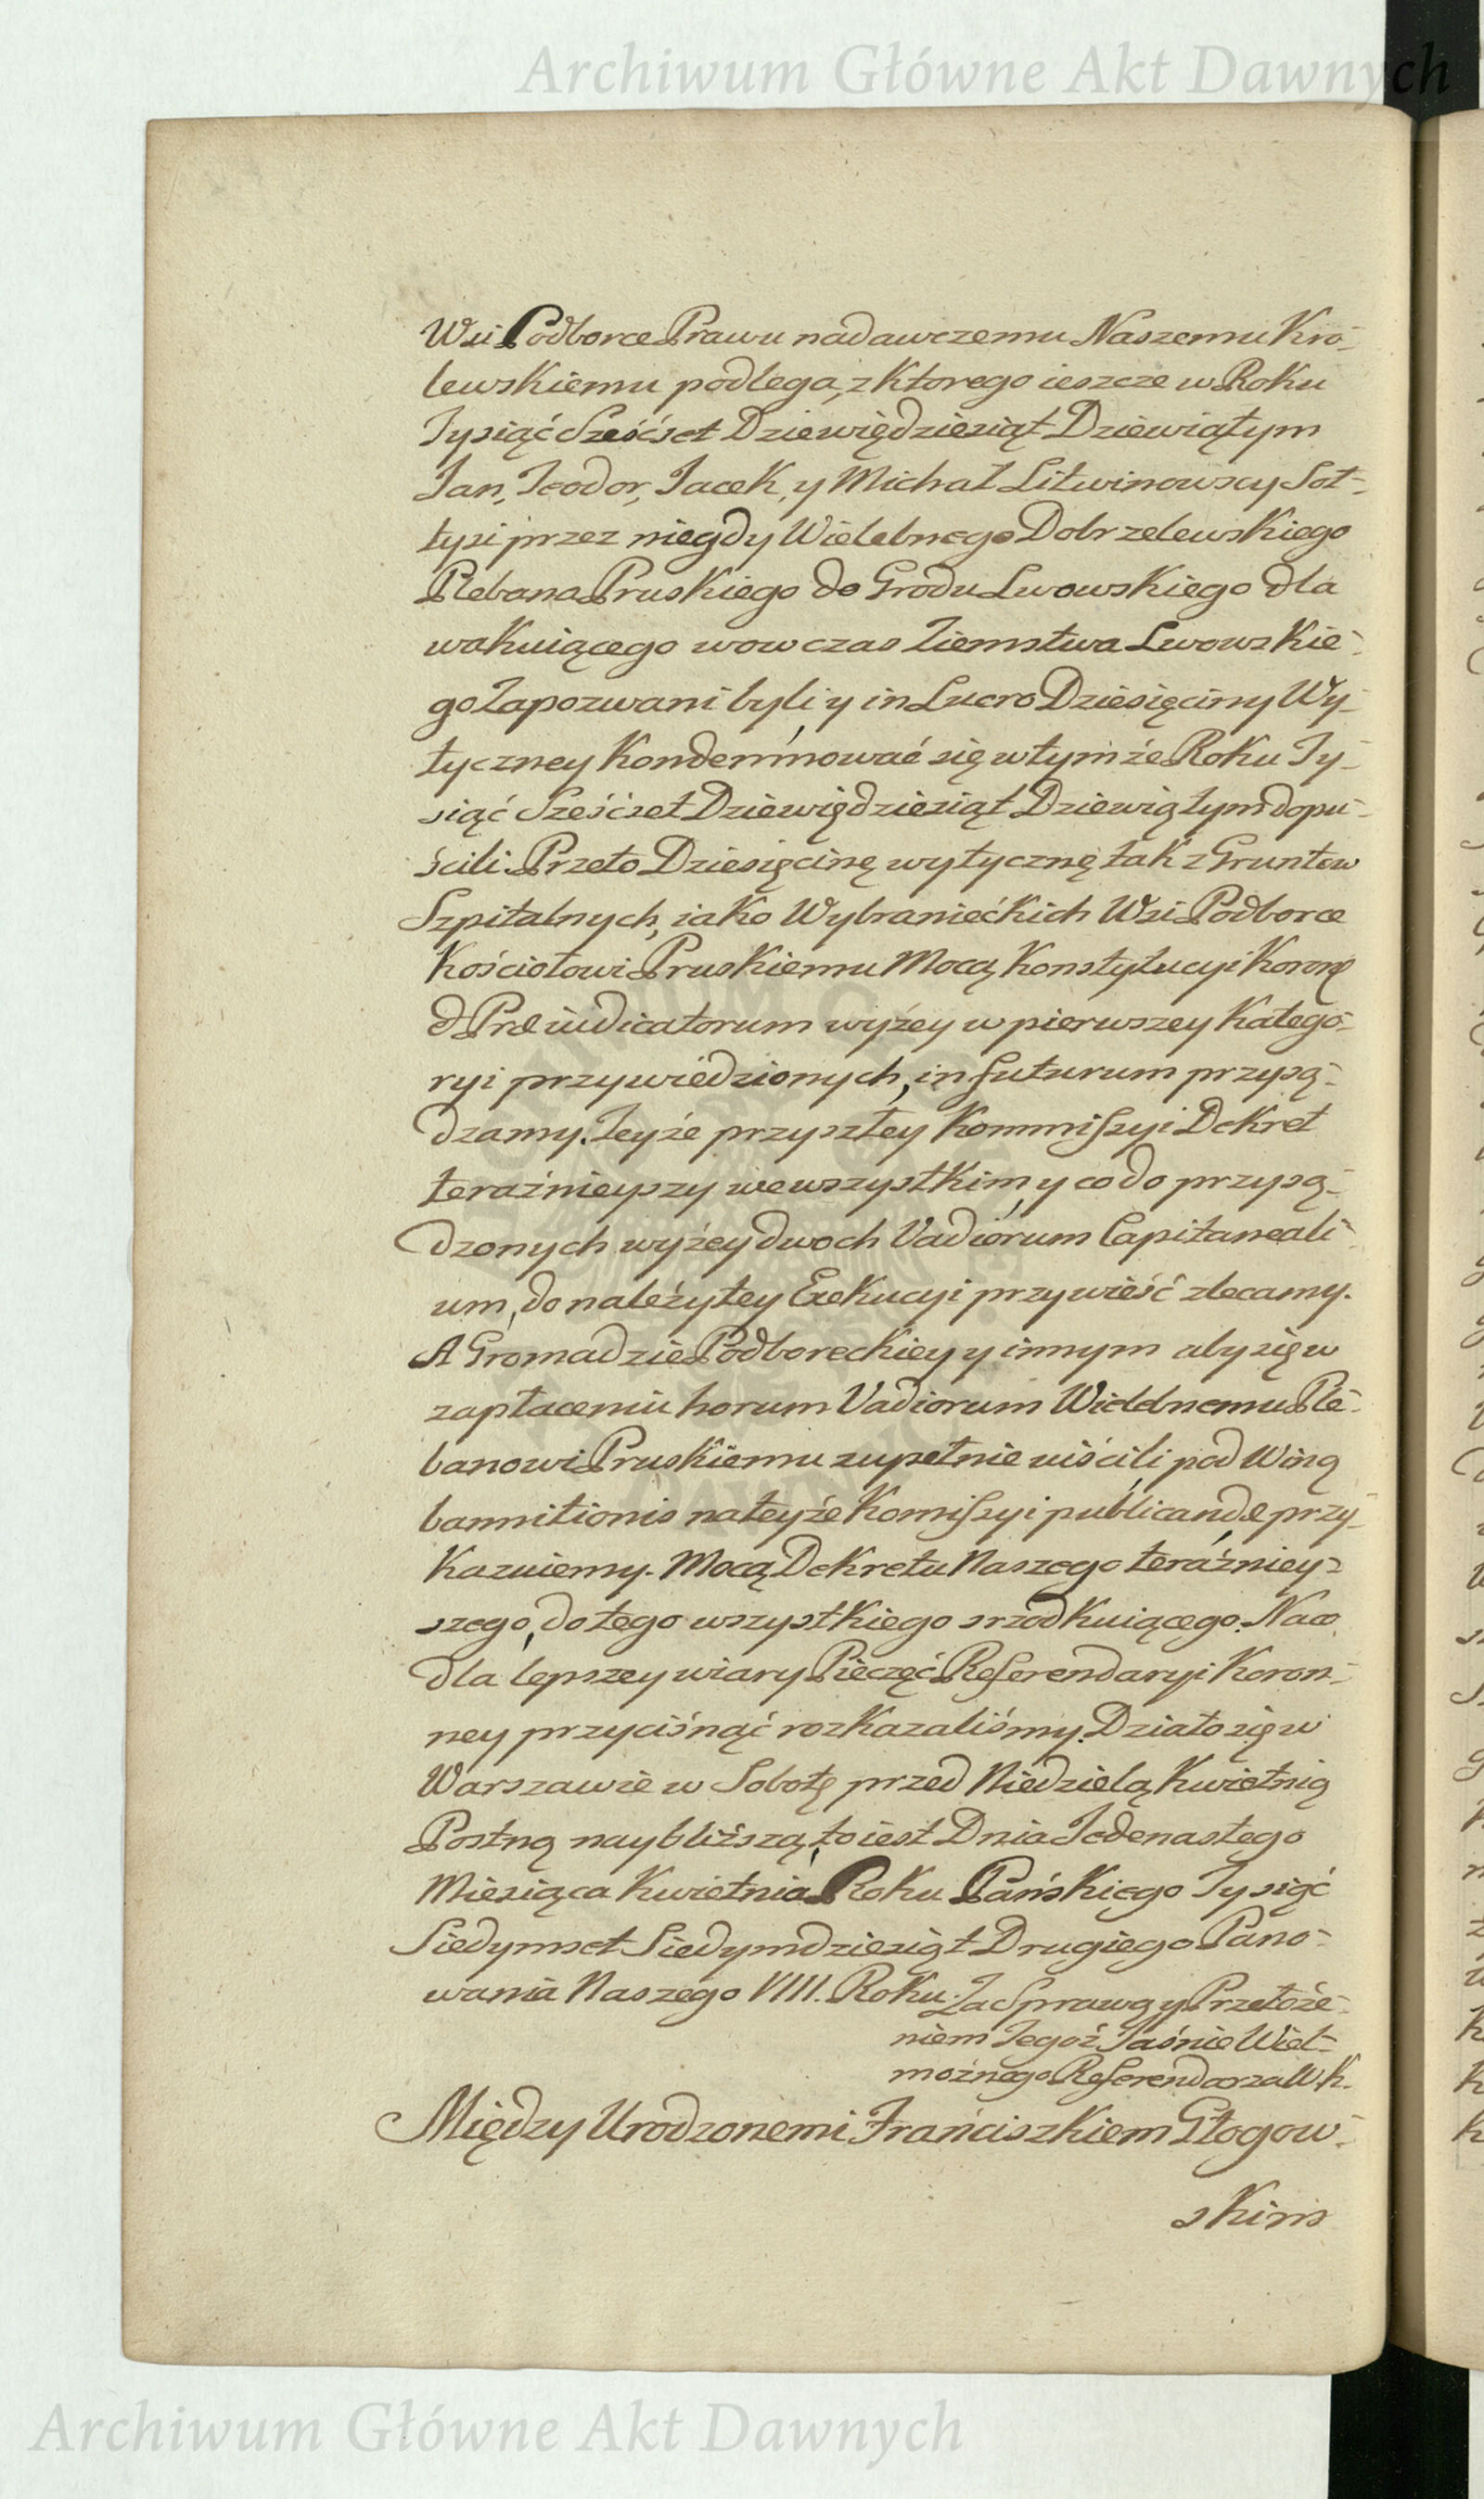 Archiwum Główne Akt Dawnych
Wsi Podborce Prawu nadawczemu Naszemu Kro-
lewskiemu podlega, z ktorego ieszcze w Roku
Tysiąć Sześćset Dziewiędziesiąt Dziewiątym
Jan, Teodor, Jacek, y Michał Litwinowscy Soł-
tysi przez niegdy Wielebnego Dobrzelewskiego
Plebana Pruskiego do Grodu Lwowskiego dla
wakuiącego wowczas Ziemstwa Lwowskie-
go Zapozwani byli, y in Lucro Dziesięciny Wy-
tyczney Kondemnować się w tymże Roku Ty-
siąć Sześćset Dziewiędziesiąt Dziewiątym dopu-
ścili. Przeto Dziesięcinę wytyczną tak z Gruntow
Szpitalnych, iako Wybraniećkich Wsi Podborce
Kościołowi Pruskiemu Mocą Konstytucyi Koronę
& Præiudicatorum wyżey w pierwszey Katego-
ryi przywiedzionych, in futurum przysą-
dzamy. Teyże przyszłey Kommissyi Dekret
teraźnieyszy we wszystkim, y co do przysą-
dzonych wyżey dwoch Vadiorum Capitaneali-
um, do należytey Exekucyi przywieść zlecamy.
A Gromadzie Podboreckiey y innym aby się w
zapłaceniu horum Vadiorum Wielebnemu Ple-
banowi Pruskiemu zupełnie uiścili, pod Winą
bannitionis na teyże Komissyi publicandæ przy-
kazuiemy. Mocą Dekretu Naszego teraźniey-
szego, do tego wszystkiego srzodkuiącego. Na co
dla lepszey wiary Pieczęć Referendaryi Koron-
ney przyciśnąć rozkazaliśmy. Działo się w
Warszawie w Sobotę przed Niedzielą Kwietnią
Postną naybliższą, to iest Dnia Jedenastego
Miesiąca Kwietnia Roku Pańskiego Tysiąć
Siedymset Siedymdziesiąt Drugiego Pano-
wania Naszego VIII. Roku. Za Sprawą y Przełoże-
niem Tegoż Jaśnie Wiel-
możnego Referendarza W. K.
Między Urodzonemi Franciszkiem Głogow-
skim
Archiwum Główne Akt Dawnych